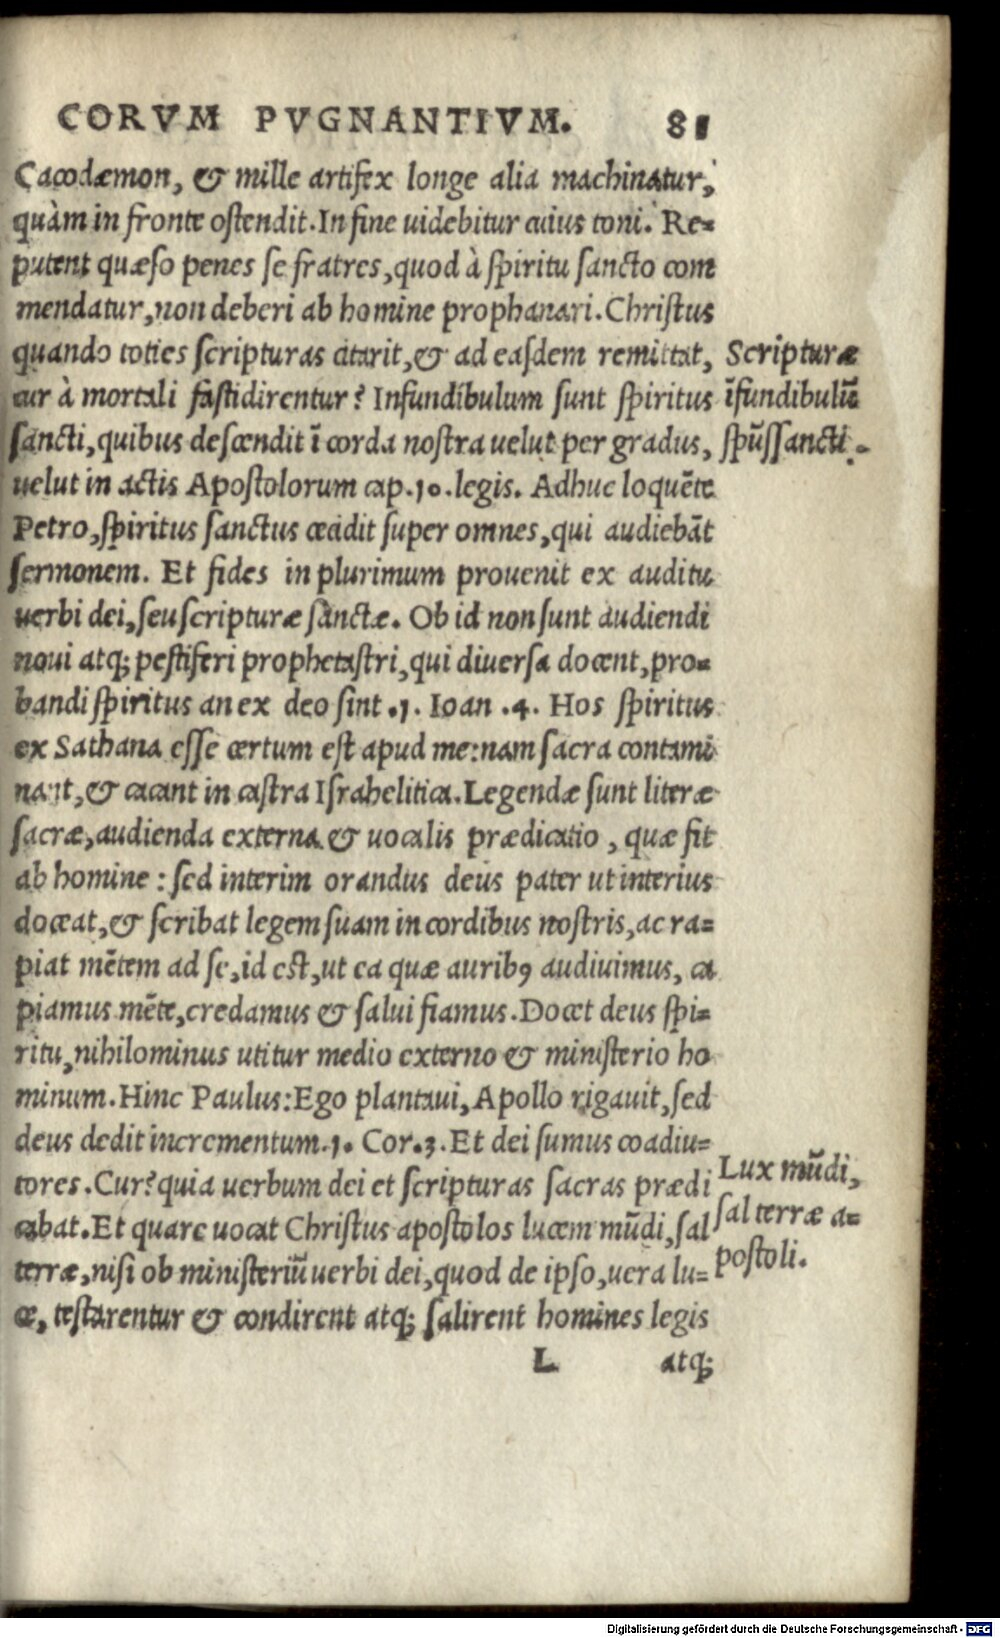 CORVM PVGNANTIVM. 81
Cacodæmon, & mille artifex longe alia machinatur,
quàm in fronte ostendit. In fine uidebitur cuius toni. Re=
putent quæso penes se fratres, quod à spiritu sancto com
mendatur, non deberi ab homine prophanari. Christus
quando toties scripturas citarit, & ad easdem remittat,
cur à mortali fastidirentur? Infundibulum sunt spiritus
sancti, quibus descendit ī corda nostra uelut per gradus,
uelut in actis Apostolorum cap. 10. legis. Adhuc loquēte
Petro, spiritus sanctus cecidit super omnes, qui audiebāt
sermonem. Et fides in plurimum prouenit ex auditu
uerbi dei, seu scripturæ sanctæ. Ob id non sunt audiendi
noui atq; pestiferi prophetastri, qui diuersa docent, pro=
bandi spiritus an ex deo sint .1. Ioan .4. Hos spiritus
ex Sathana esse certum est apud me: nam sacra contami
nant, & cacant in castra Israhelitica. Legendæ sunt literæ
sacræ, audienda externa & uocalis prædicatio, quæ fit
ab homine: sed interim orandus deus pater ut interius
doceat, & scribat legem suam in cordibus nostris, ac ra=
piat mētem ad se, id est, ut ea quæ auribꝰ audiuimus, ca
piamus mēte, credamus & salui fiamus. Docet deus spi=
ritu, nihilominus utitur medio externo & ministerio ho
minum. Hinc Paulus: Ego plantaui, Apollo rigauit, sed
deus dedit incrementum. 1. Cor. 3. Et dei sumus coadiu=
tores. Cur? quia uerbum dei et scripturas sacras prædi
cabat. Et quare uocat Christus apostolos lucem mūdi, sal
terræ, nisi ob ministeriū uerbi dei, quod de ipso, uera lu=
ce, testarentur & condirent atq; salirent homines legis
L atq;
Scripturæ
īfundibulū
spūs sancti.
Lux mūdi,
sal terræ a=
postoli.
Digitalisierung gefördert durch die Deutsche Forschungsgemeinschaft - DFG